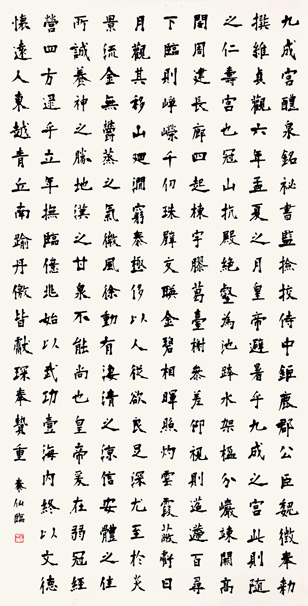 九成宮醴泉銘祕書監撿挍侍中鉅鹿郡公臣魏徵奉勅
撰維貞觀六年孟夏之月皇帝避暑乎九成之宮此則隨
之仁壽宮也冠山抗殿絕壑為池跨水架楹分巖竦闕高
閣周建長廊四起棟宇膠葛臺榭參差仰視則迢遰百尋
下臨則崢嶸千仞珠璧交暎金碧相暉照灼雲霞蔽虧日
月觀其移山迴澗窮泰極侈以人從欲良足深尤至於炎
景流金無欝蒸之氣微風徐動有淒清之涼信安體之佳
所誠養神之勝地漢之甘泉不能尚也皇帝爰在弱冠經
營四方逮乎立年撫臨億兆始以武功壹海內終以文德
懷遠人東越青丘南踰丹儌皆獻琛奉贄重
秦仙臨